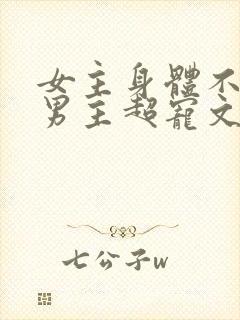 女主身體不
男主超寵文
七公子w